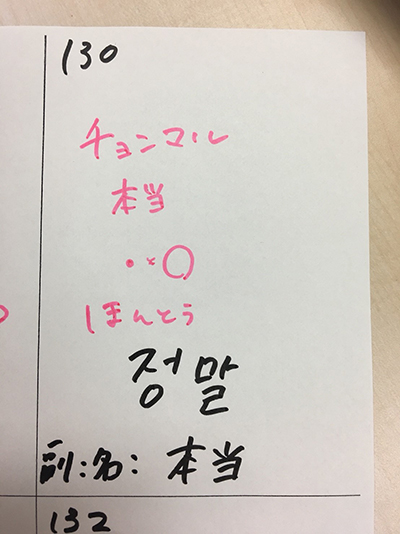 130
チョンマル
本当
・×○
ほんとう
정말
副:名: 本当
132